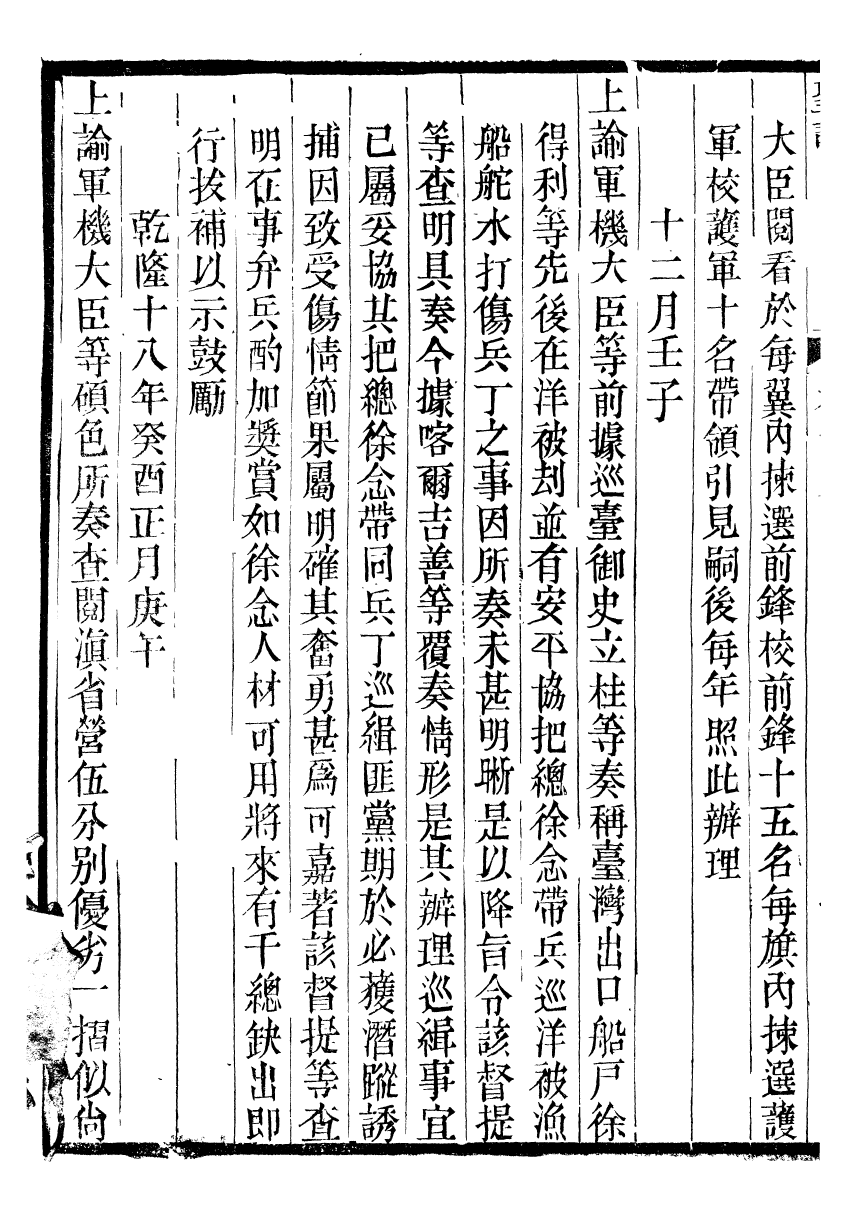 大臣閱看於每翼內揀選前鋒校前鋒十五名每旗內揀選護
軍校護軍十名帶領引見嗣後每年照此辦理
十二月壬子
上諭軍機大臣等前據巡臺御史立柱等奏稱臺灣出口船戶徐
得利等先後在洋被刦並有安平協把總徐念帶兵巡洋被漁
船舵水打傷兵丁之事因所奏未甚明晰是以降旨令該督提
等查明具奏今據喀爾吉善等覆奏情形是其辦理巡緝事宜
已屬妥協其把總徐念帶同兵丁巡緝匪黨期於必獲潛蹤誘
捕因致受傷情節果屬明確其奮勇甚爲可嘉著該督提等查
明在事弁兵酌加獎賞如徐念人材可用將來有千總缺出即
行拔補以示鼓勵
乾隆十八年癸酉正月庚午
上諭軍機大臣等碩色所奏查閱滇省營伍分別優劣一摺似尙